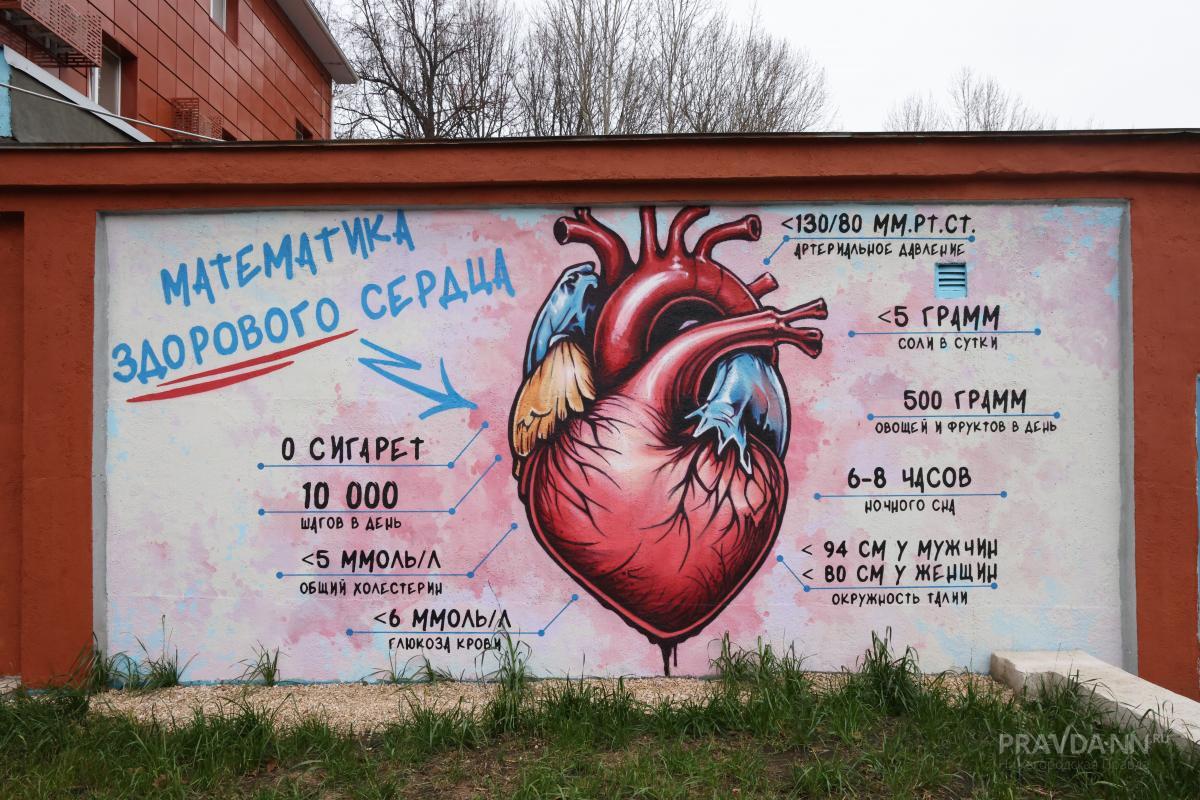 МАТЕМАТИКА
ЗДОРОВОГО СЕРДЦА
0 СИГАРЕТ
10 000
ШАГОВ В ДЕНЬ
<5 ММОЛЬ/Л
ОБЩИЙ ХОЛЕСТЕРИН
<6 ММОЛЬ/Л
ГЛЮКОЗА КРОВИ
<130/80 ММ.РТ.СТ.
АРТЕРИАЛЬНОЕ ДАВЛЕНИЕ
<5 ГРАММ
СОЛИ В СУТКИ
500 ГРАММ
ОВОЩЕЙ И ФРУКТОВ В ДЕНЬ
6-8 ЧАСОВ
НОЧНОГО СНА
< 94 СМ У МУЖЧИН
< 80 СМ У ЖЕНЩИН
ОКРУЖНОСТЬ ТАЛИИ
PRAVDA-NN.RU
Нижегородская Правда